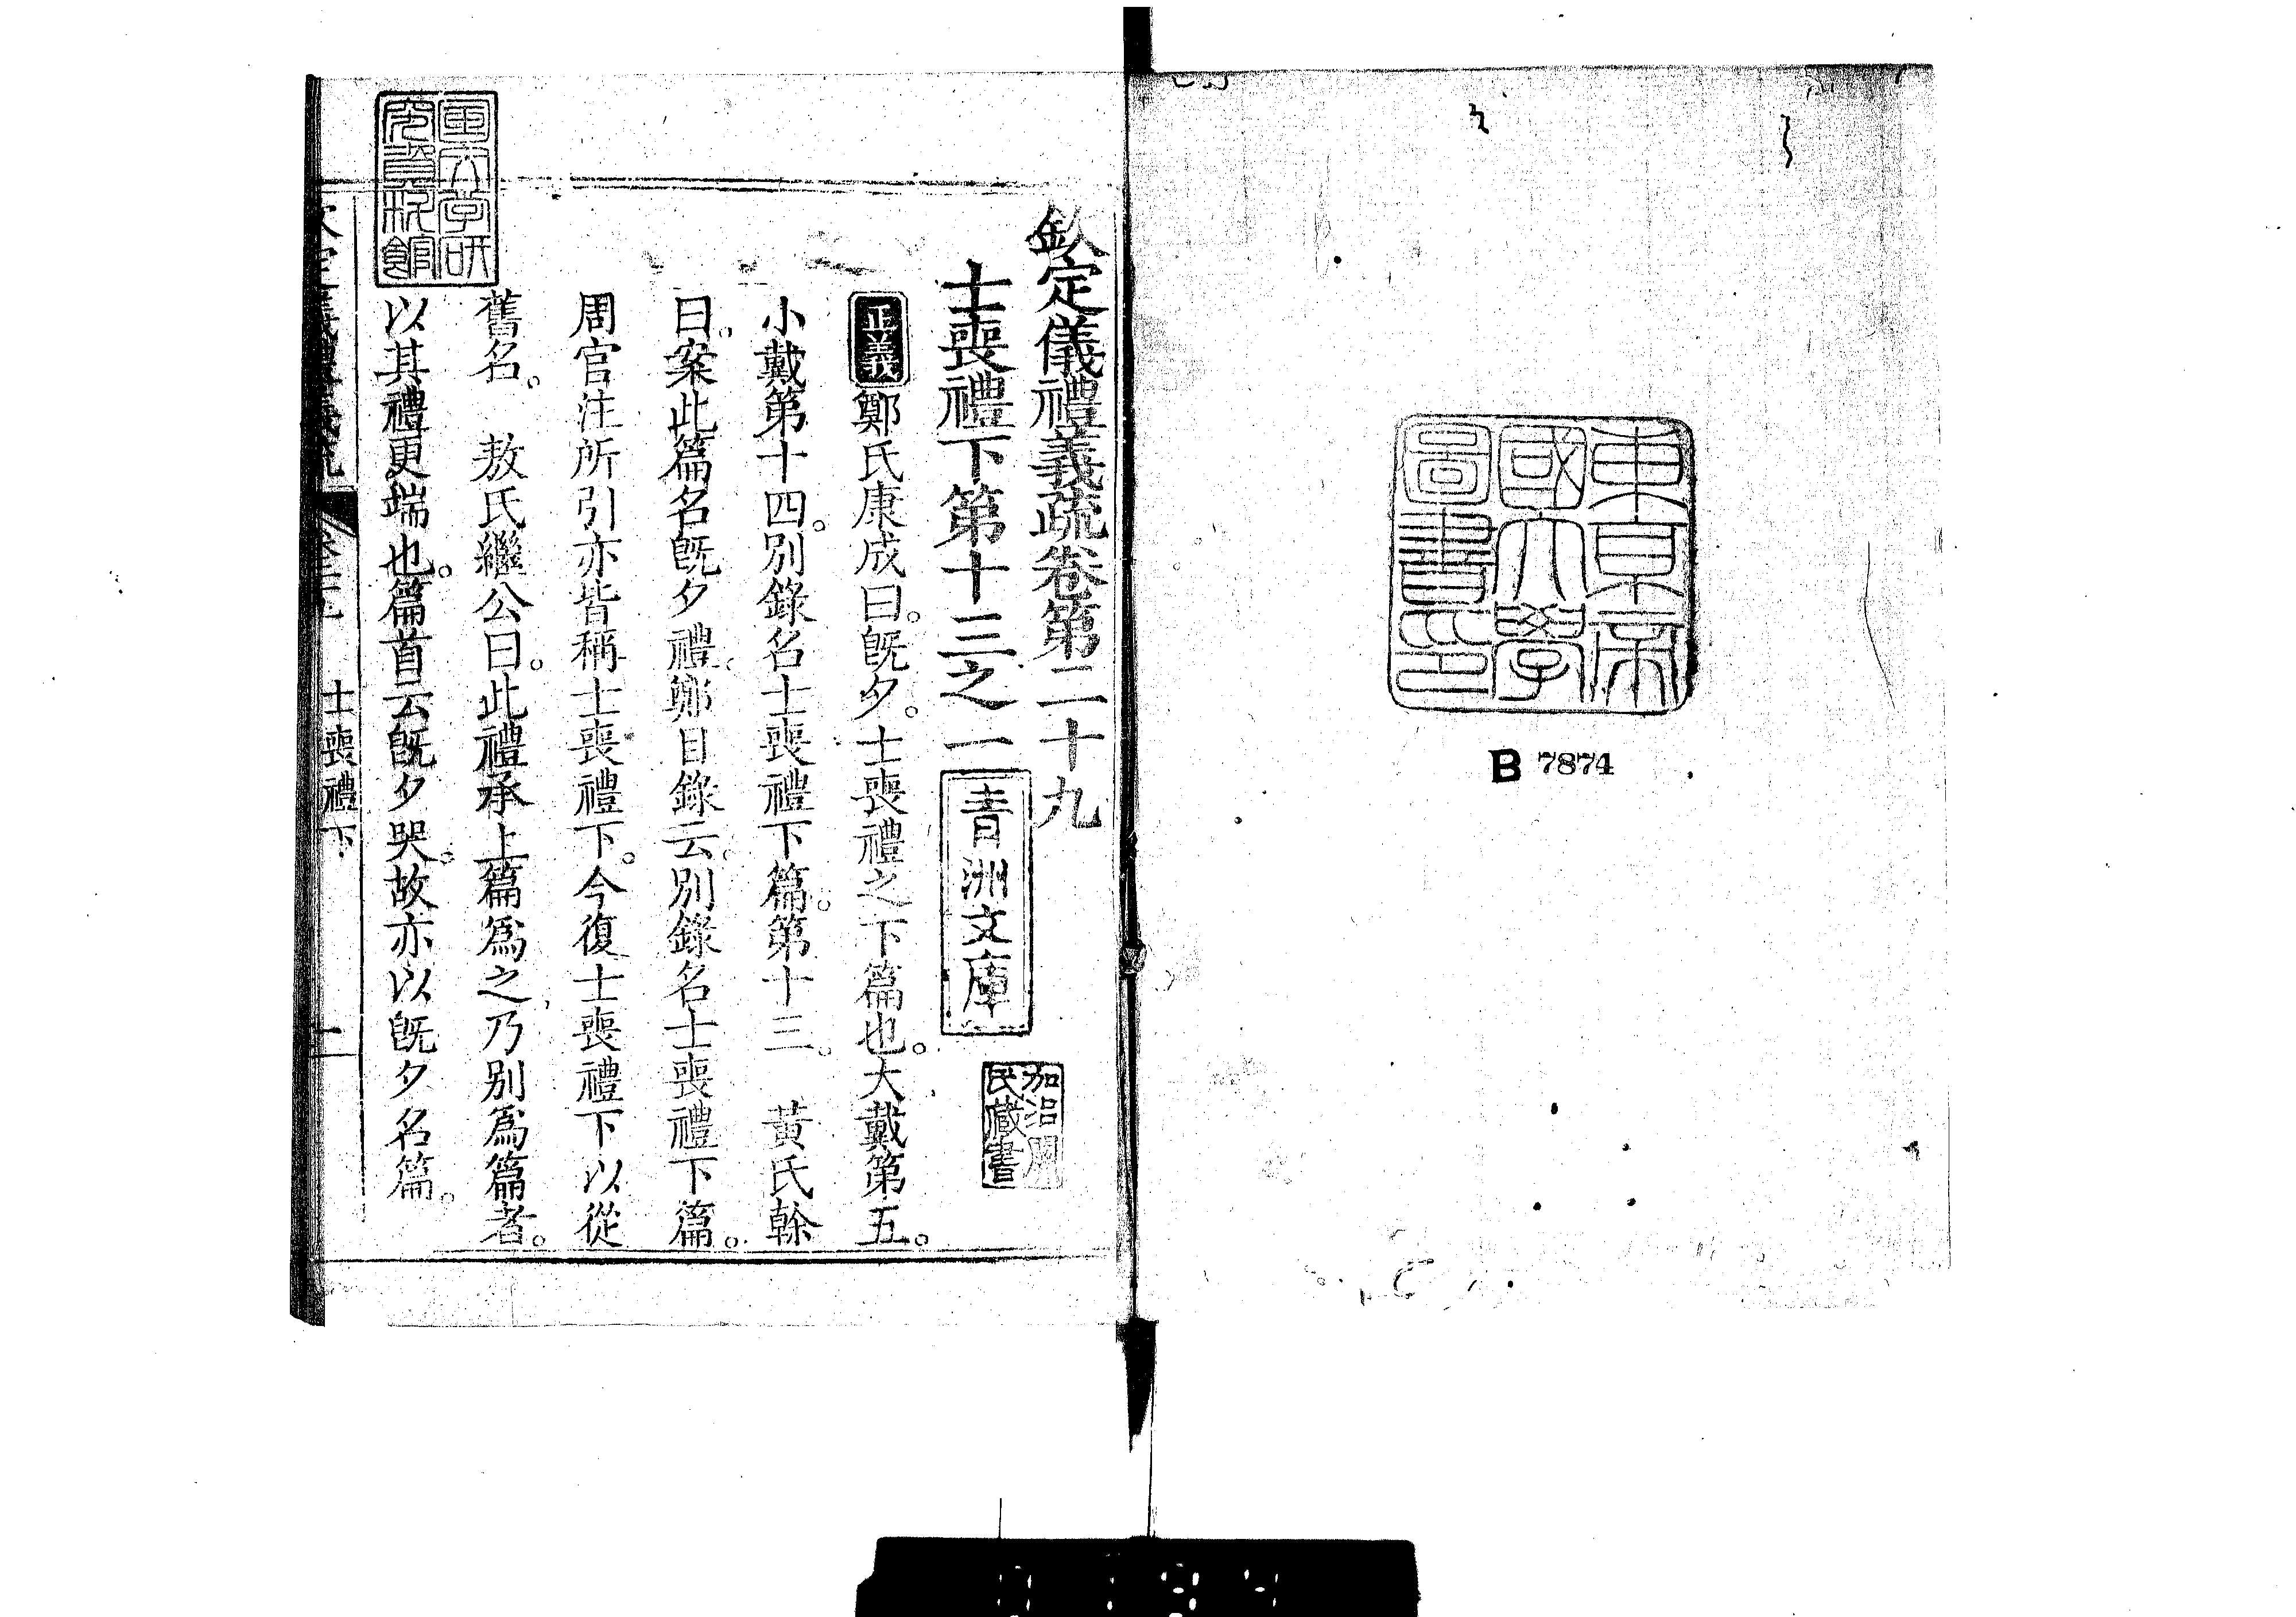 東京帝
國大學
圖書印
B 7874
欽定儀禮義疏卷第二十九
士喪禮下第十三之一
青洲文庫
民藏書
正義鄭氏康成曰。旣夕。士喪禮之下篇也。大戴第五。
小戴第十四。別錄名士喪禮下篇。第十三。 黃氏榦
曰。案此篇名旣夕禮。鄭目錄云。別錄名士喪禮下篇。
周官注所引亦皆稱士喪禮下。今復士喪禮下以從
舊名。 敖氏繼公曰。此禮承上篇爲之乃別爲篇者。
以其禮更端也。篇首云旣夕哭。故亦以旣夕名篇。
士喪禮下